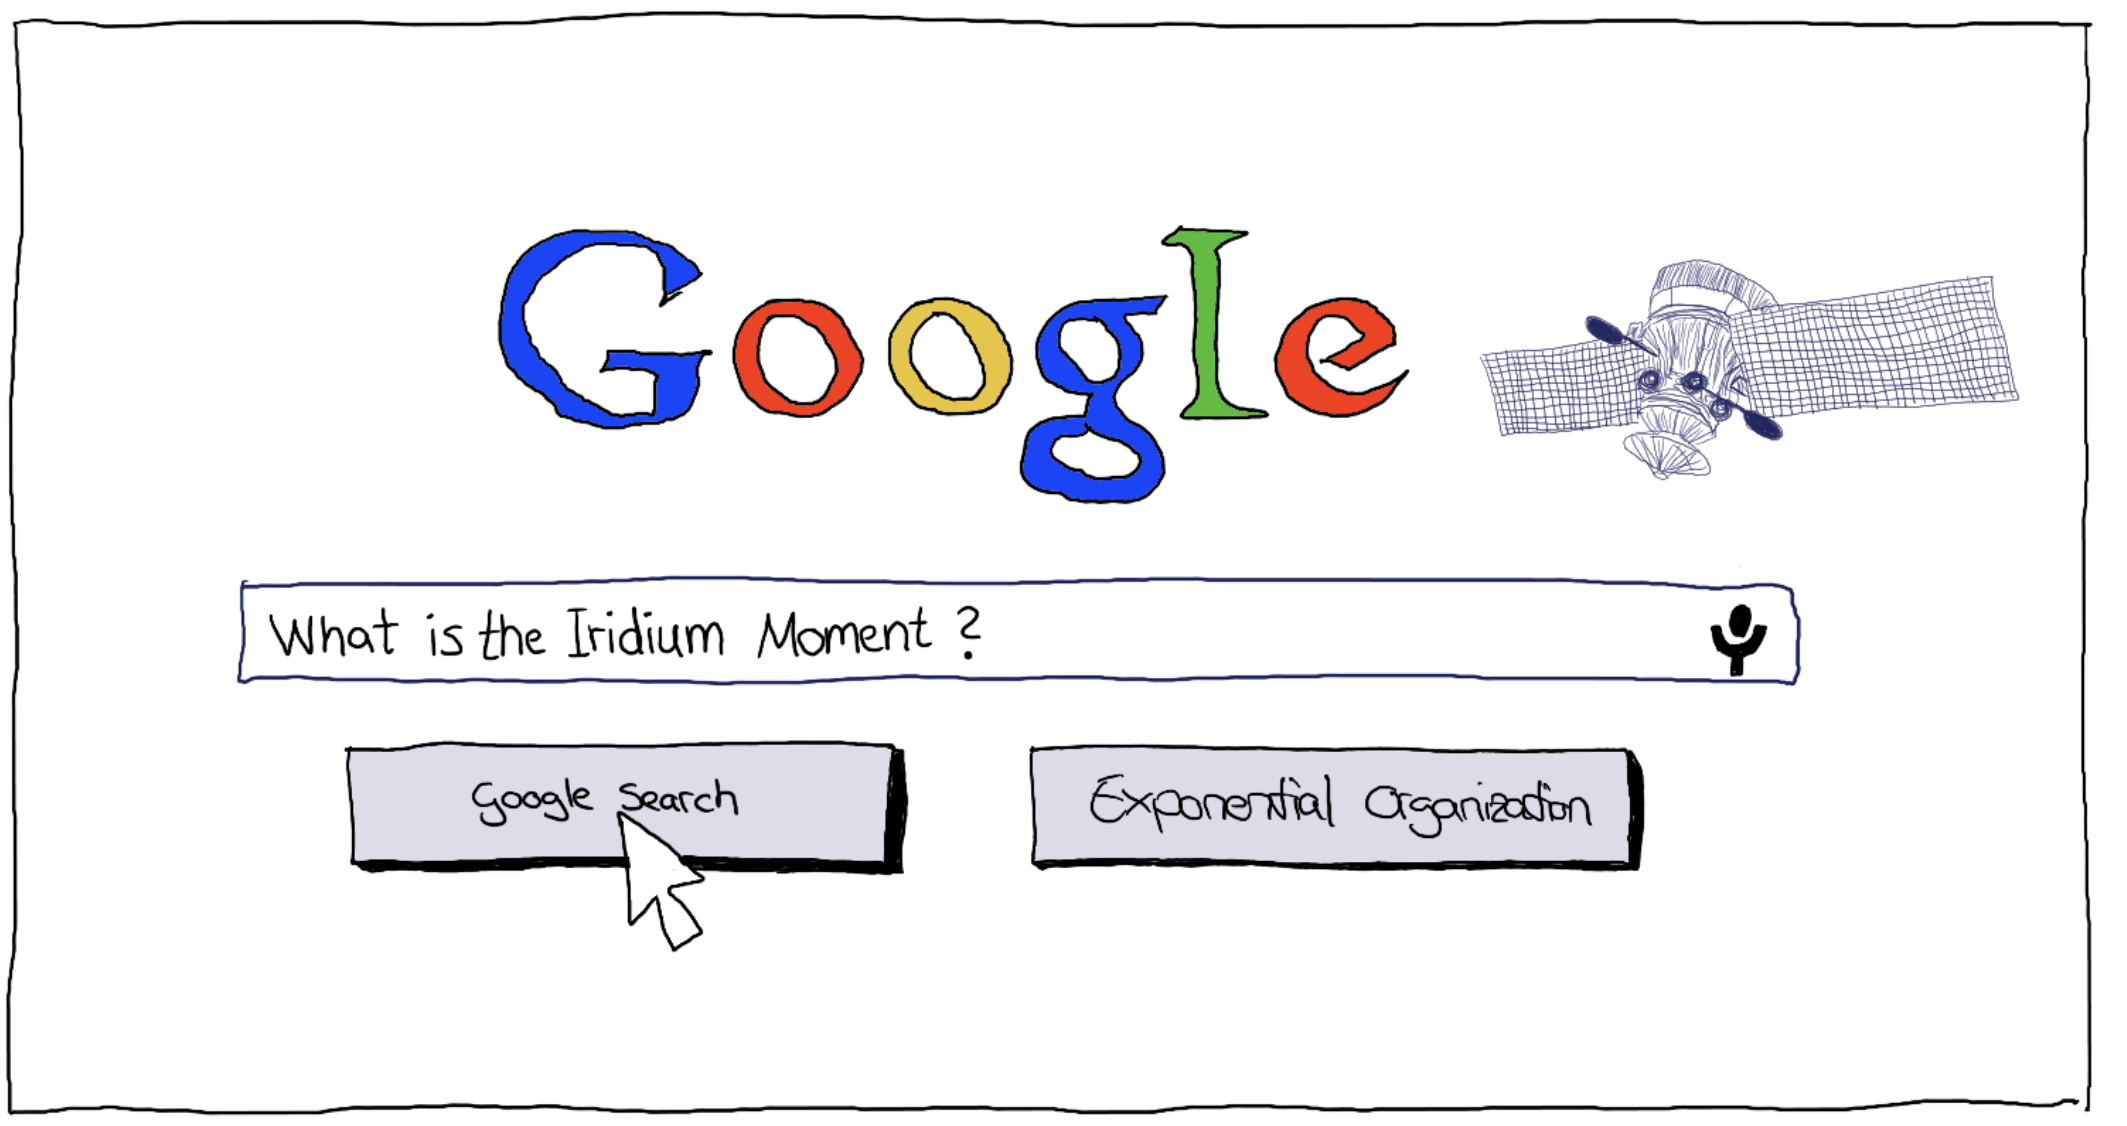 Google
What is the Iridium Moment ?
Google Search
Exponential Organization